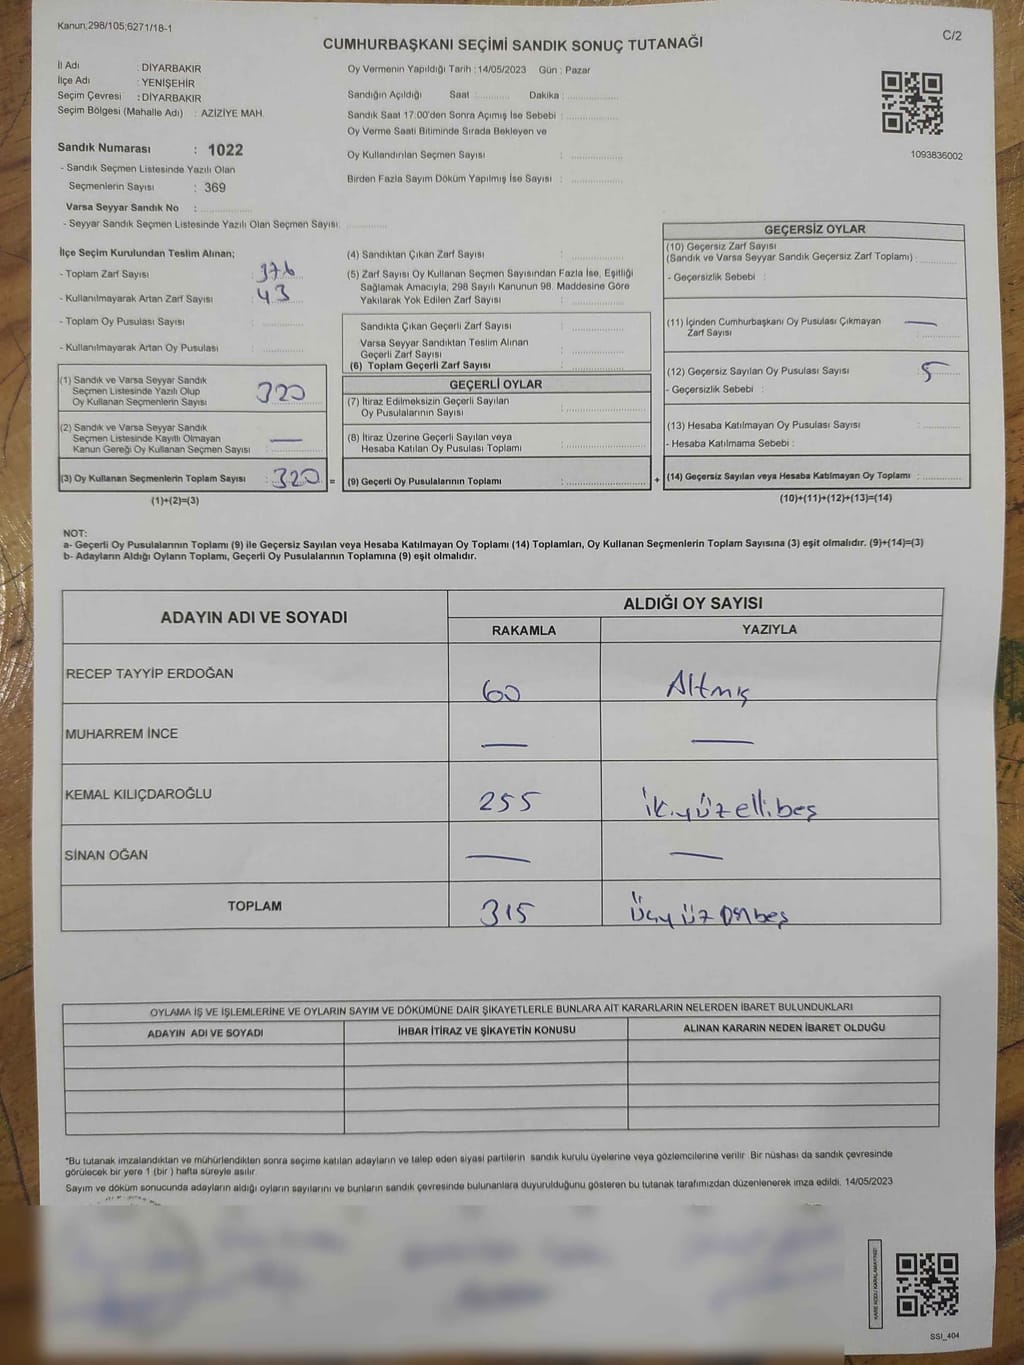 Kanun;298/105;6271/18-1
C/2
CUMHURBAŞKANI SEÇİMİ SANDIK SONUÇ TUTANAĞI
İl Adı : DİYARBAKIR
İlçe Adı : YENİŞEHİR
Seçim Çevresi : DİYARBAKIR
Seçim Bölgesi (Mahalle Adı) : AZİZİYE MAH.
Sandık Numarası : 1022
- Sandık Seçmen Listesinde Yazılı Olan
Seçmenlerin Sayısı : 369
Varsa Seyyar Sandık No :
- Seyyar Sandık Seçmen Listesinde Yazılı Olan Seçmen Sayısı:
Oy Vermenin Yapıldığı Tarih : 14/05/2023 Gün : Pazar
Sandığın Açıldığı Saat : Dakika :
Sandık Saat 17:00'den Sonra Açımış İse Sebebi :
Oy Verme Saati Bitiminde Sırada Bekleyen ve
Oy Kullandırılan Seçmen Sayısı :
Birden Fazla Sayım Döküm Yapılmış İse Sayısı :
1093836002
İlçe Seçim Kurulundan Teslim Alınan;
- Toplam Zarf Sayısı : 376
- Kullanılmayarak Artan Zarf Sayısı : 43
- Toplam Oy Pusulası Sayısı :
- Kullanılmayarak Artan Oy Pusulası :
(1) Sandık ve Varsa Seyyar Sandık
Seçmen Listesinde Yazılı Olup
Oy Kullanan Seçmenlerin Sayısı : 320
(2) Sandık ve Varsa Seyyar Sandık
Seçmen Listesinde Kayıtlı Olmayan
Kanun Gereği Oy Kullanan Seçmen Sayısı : —
(3) Oy Kullanan Seçmenlerin Toplam Sayısı : 320 =
(1)+(2)=(3)
(4) Sandıktan Çıkan Zarf Sayısı :
(5) Zarf Sayısı Oy Kullanan Seçmen Sayısından Fazla İse, Eşitliği
Sağlamak Amacıyla, 298 Sayılı Kanunun 98. Maddesine Göre
Yakılarak Yok Edilen Zarf Sayısı :
Sandıkta Çıkan Geçerli Zarf Sayısı :
Varsa Seyyar Sandıktan Teslim Alınan
Geçerli Zarf Sayısı :
(6) Toplam Geçerli Zarf Sayısı :
GEÇERLİ OYLAR
(7) İtiraz Edilmeksizin Geçerli Sayılan
Oy Pusulalarının Sayısı :
(8) İtiraz Üzerine Geçerli Sayılan veya
Hesaba Katılan Oy Pusulası Toplamı :
(9) Geçerli Oy Pusulalarının Toplamı : +
GEÇERSİZ OYLAR
(10) Geçersiz Zarf Sayısı
(Sandık ve Varsa Seyyar Sandık Geçersiz Zarf Toplamı) :
- Geçersizlik Sebebi :
(11) İçinden Cumhurbaşkanı Oy Pusulası Çıkmayan
Zarf Sayısı : —
(12) Geçersiz Sayılan Oy Pusulası Sayısı : 5
- Geçersizlik Sebebi :
(13) Hesaba Katılmayan Oy Pusulası Sayısı :
- Hesaba Katılmama Sebebi :
(14) Geçersiz Sayılan veya Hesaba Katılmayan Oy Toplamı :
(10)+(11)+(12)+(13)=(14)
NOT:
a- Geçerli Oy Pusulalarının Toplamı (9) ile Geçersiz Sayılan veya Hesaba Katılmayan Oy Toplamı (14) Toplamları, Oy Kullanan Seçmenlerin Toplam Sayısına (3) eşit olmalıdır. (9)+(14)=(3)
b- Adayların Aldığı Oyların Toplamı, Geçerli Oy Pusulalarının Toplamına (9) eşit olmalıdır.
ADAYIN ADI VE SOYADI ALDIĞI OY SAYISI
RAKAMLA YAZIYLA
RECEP TAYYİP ERDOĞAN 60 Altmış
MUHARREM İNCE — —
KEMAL KILIÇDAROĞLU 255 İkiyüzellibeş
SİNAN OĞAN — —
TOPLAM 315 Üçyüz onbeş
OYLAMA İŞ VE İŞLEMLERİNE VE OYLARIN SAYIM VE DÖKÜMÜNE DAİR ŞİKAYETLERLE BUNLARA AİT KARARLARIN NELERDEN İBARET BULUNDUKLARI
ADAYIN ADI VE SOYADI İHBAR İTİRAZ VE ŞİKAYETİN KONUSU ALINAN KARARIN NEDEN İBARET OLDUĞU
*Bu tutanak imzalandıktan ve mühürlendikten sonra seçime katılan adayların ve talep eden siyasi partilerin sandık kurulu üyelerine veya gözlemcilerine verilir. Bir nüshası da sandık çevresinde
görülecek bir yere 1 (bir ) hafta süreyle asılır.
Sayım ve döküm sonucunda adayların aldığı oyların sayılarını ve bunların sandık çevresinde bulunanlara duyurulduğunu gösteren bu tutanak tarafımızdan düzenlenerek imza edildi. 14/05/2023
KARE KODU KARALAMAYINIZ!
SSI_404